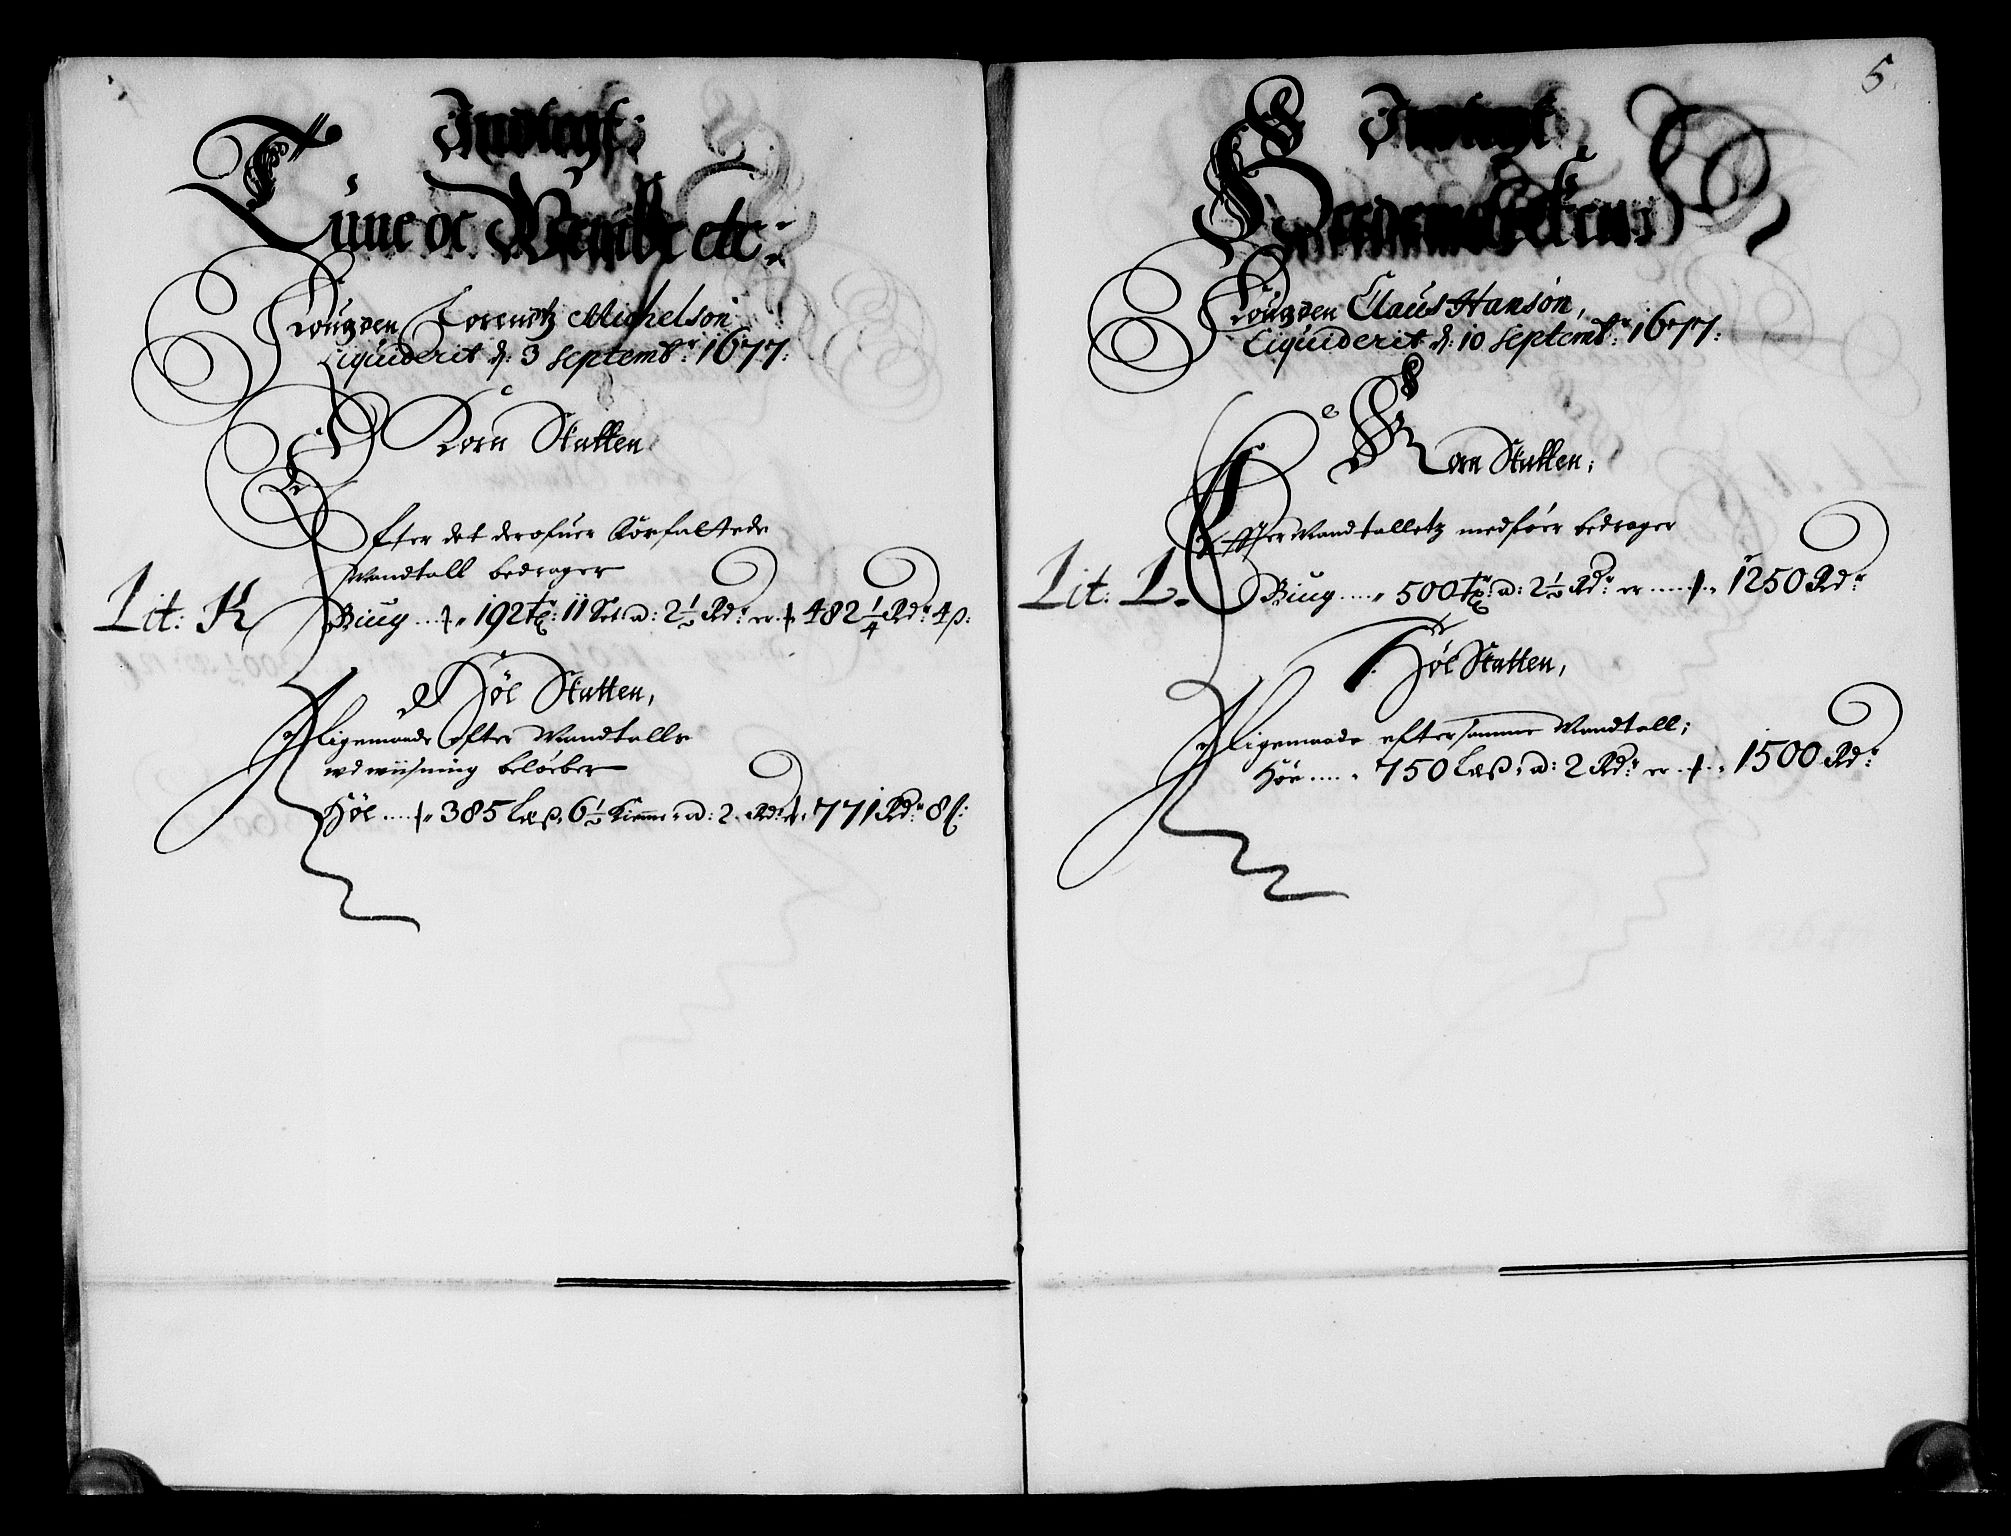 Indtegt:
Tune oc Wemble etc:
Fougden Lorentz Michelson
Liquiderit d: 3 Septemb: 1677:
Korn Skatten
Efter det derofuer forfattede
Mandtall bedrager
Lit: K Biug 192 tr: 11 Set: a: 2½ Rdr er 482¼ Rdr 4 ß:
Høe Skatten,
Ligemaade efter Mandtalls
udwiisning beløeber
Høe 385 læs, 6½ a: 2 Rdr 771 Rdr 8 ß:
5.
Indtegt
Hedemarken:
Fougden Claus Hanson,
Liquiderit d: 10 Septemb: 1677:
Korn Skatten:
Effter Mandtalletz medføer bedrager
Lit: L. Biug 500 tr: a: 2½ Rdr er 1250 Rdr
Høe Skatten,
Ligemaade efter samme Mandtall;
Høe 750 læs, a: 2 Rdr er 1500 Rdr